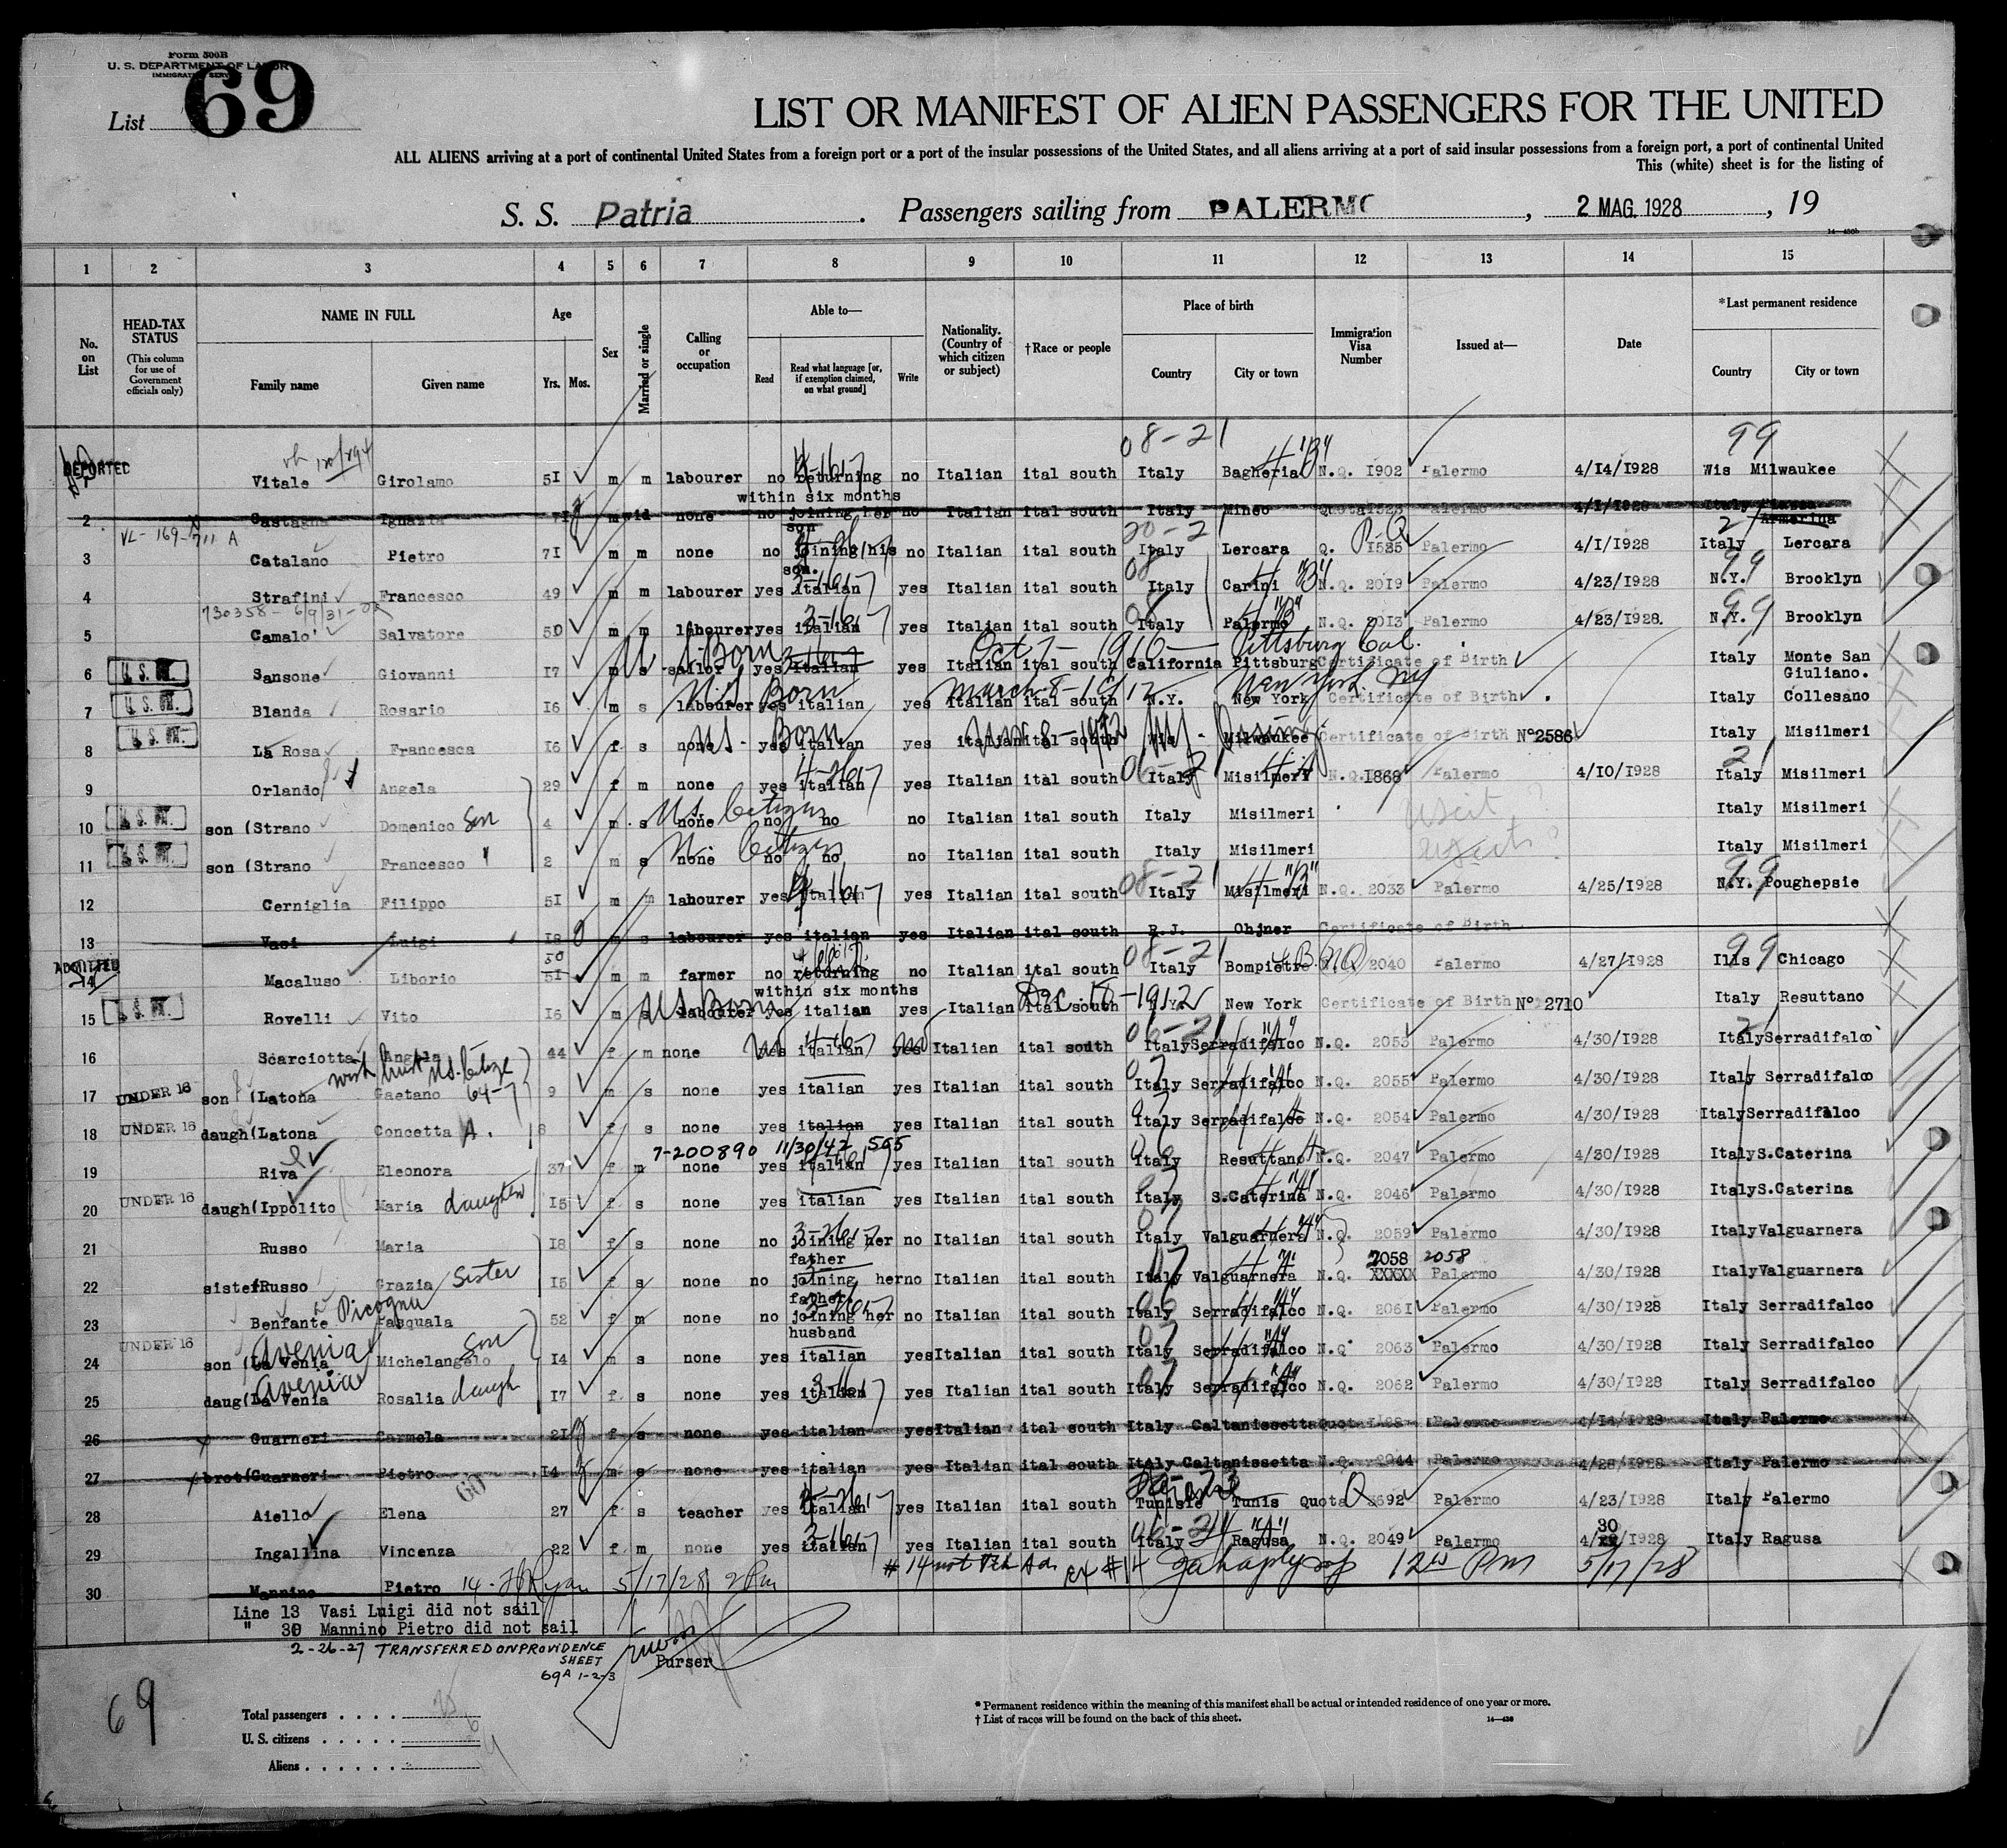 Form 500B
U. S. DEPARTMENT OF LABOR
IMMIGRATION SERVICE
List 69
LIST OR MANIFEST OF ALIEN PASSENGERS FOR THE UNITED
ALL ALIENS arriving at a port of continental United States from a foreign port or a port of the insular possessions of the United States, and all aliens arriving at a port of said insular possessions from a foreign port, a port of continental United
This (white) sheet is for the listing of
S. S. Patria . Passengers sailing from PALERMO , 2 MAG. 1928 , 19
1 2 3 4 5 6 7 8 9 10 11 12 13 14 15
No. on List
HEAD-TAX STATUS (This column for use of Government officials only)
NAME IN FULL Family name Given name
Age Yrs. Mos.
Sex
Married or single
Calling or occupation
Able to— Read Read what language [or, if exemption claimed, on what ground] Write
Nationality. (Country of which citizen or subject)
†Race or people
Place of birth Country City or town
Immigration Visa Number
Issued at—
Date
*Last permanent residence Country City or town
08-21 99
DEPORTED Vitale Girolamo 51 m m labourer no returning no Italian ital south Italy Bagheria N.Q. 1902 Palermo 4/14/1928 Wis Milwaukee
within six months
2 Castagna Ignazia 71 wid none no joining her no Italian ital south Italy Mineo Quota 1523 Palermo 4/1/1928 Italy Piazza
son Armerina
VL-169-711 A
3 Catalano Pietro 71 m m none no joining his no Italian ital south Italy Lercara Q. 1525 Palermo 4/1/1928 Italy Lercara
son.
4 Strafini Francesco 49 m m labourer yes italian yes Italian ital south Italy Carini N.Q. 2019 Palermo 4/23/1928 N.Y. Brooklyn
730358-6/9/31
5 Camalo' Salvatore 50 m m labourer yes italian yes Italian ital south Italy Palermo N.Q. 2013 Palermo 4/23/1928. N.Y. Brooklyn
U.S. Born Oct 7- 1910 Pittsburg Cal.
6 Sansone Giovanni 17 m s sailor yes italian yes Italian ital south California Pittsburg Certificate of Birth Italy Monte San
Giuliano.
U.S. Born March-8-1912 New York NY
7 Blanda Rosario 16 m s labourer yes italian yes Italian ital south N.Y. New York Certificate of Birth Italy Collesano
U.S. Born
8 La Rosa Francesca 16 f s none yes italian yes italian ital south Wis Milwaukee Certificate of Birth Nº2586 Italy Misilmeri
9 Orlando Angela 29 f m none yes italian yes Italian ital south Italy Misilmeri N.Q. 1868 Palermo 4/10/1928 Italy Misilmeri
U.S. Citizen
10 son (Strano Domenico Son 4 m s none no no no Italian ital south Italy Misilmeri Italy Misilmeri
Citizen
11 son (Strano Francesco 2 m s none no no no Italian ital south Italy Misilmeri Italy Misilmeri
12 Cerniglia Filippo 51 m m labourer yes italian yes Italian ital south Italy Misilmeri N.Q. 2033 Palermo 4/25/1928 N.Y. Poughepsie
13 Vasi Luigi 18 m s labourer yes italian yes Italian ital south R.J. Ohjner Certificate of Birth
ADMITTED
14 Macaluso Liborio 51 m m farmer no returning no Italian ital south Italy Bompietro 2040 Palermo 4/27/1928 Ills Chicago
within six months
U.S. Born Dec. 18-1912
15 Rovelli Vito 16 m s labourer yes italian yes Italian ital south N.Y. New York Certificate of Birth Nº 2710 Italy Resuttano
16 Scarciotta Angela 44 f m none yes italian yes Italian ital south Italy Serradifalco N.Q. 2053 Palermo 4/30/1928 Italy Serradifalco
17 UNDER 16 son (Latona Gaetano 9 m s none yes italian yes Italian ital south Italy Serradifalco N.Q. 2055 Palermo 4/30/1928 Italy Serradifalco
18 UNDER 16 daugh(Latona Concetta A. 8 f s none yes italian yes Italian ital south Italy Serradifalco N.Q. 2054 Palermo 4/30/1928 Italy Serradifalco
7-200890 11/30/42 505
19 Riva Eleonora 37 f m none yes italian yes Italian ital south Italy Resuttano N.Q. 2047 Palermo 4/30/1928 Italy S.Caterina
20 UNDER 16 daugh(Ippolito Maria daughter 15 f s none yes italian yes Italian ital south Italy S.Caterina N.Q. 2046 Palermo 4/30/1928 Italy S.Caterina
21 Russo Maria 18 f s none no joining her no Italian ital south Italy Valguarnera N.Q. 2059 Palermo 4/30/1928 Italy Valguarnera
father 2058 2058
22 sister Russo Grazia Sister 15 f s none no joining her no Italian ital south Italy Valguarnera N.Q. XXXXX Palermo 4/30/1928 Italy Valguarnera
father.
23 Benfante Picogna Pasquala 52 f m none no joining her no Italian ital south Italy Serradifalco N.Q. 2061 Palermo 4/30/1928 Italy Serradifalco
husband
Avenia Son
24 UNDER 16 son (La Venia Michelangelo 14 m s none yes italian yes Italian ital south Italy Serradifalco N.Q. 2063 Palermo 4/30/1928 Italy Serradifalco
Avenia
25 daug(La Venia Rosalia daugh 17 f s none yes italian yes Italian ital south Italy Serradifalco N.Q. 2062 Palermo 4/30/1928 Italy Serradifalco
26 Guarneri Carmela 21 f s none yes italian yes Italian ital south Italy Caltanissetta Quota Palermo 4/14/1928 Italy Palermo
27 brot(Guarneri Pietro 14 m s none yes italian yes Italian ital south Italy Caltanissetta N.Q. 2044 Palermo 4/28/1928 Italy Palermo
28 Aiello Elena 27 f s teacher yes italian yes Italian ital south Tunisie Tunis Quota 1692 Palermo 4/23/1928 Italy Palermo
30
29 Ingallina Vincenza 22 f m none yes italian yes Italian ital south Italy Ragusa N.Q. 2049 Palermo 4/ /1928 Italy Ragusa
30 Mannino Pietro 5/17/28 2 Pm 5/17/28
Line 13 Vasi Luigi did not sail
" 30 Mannino Pietro did not sail
2-26-27 TRANSFERRED ON PROVIDENCE
SHEET
69A 1-2-3
Purser
69
Total passengers
U. S. citizens
Aliens
* Permanent residence within the meaning of this manifest shall be actual or intended residence of one year or more.
† List of races will be found on the back of this sheet.